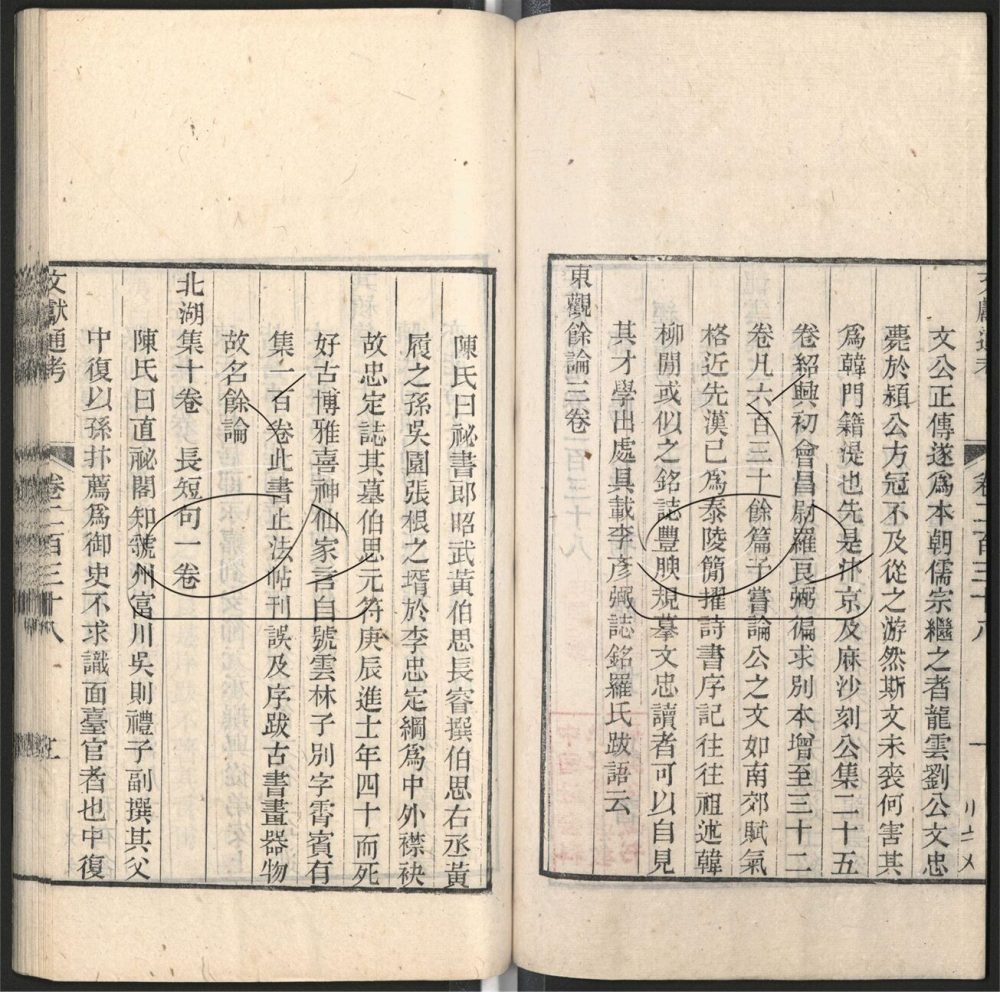 文獻通考
卷二百三十八
文公正傳遂爲本朝儒宗繼之者龍雲劉公文忠
薨於潁公方冠不及從之游然斯文未喪何害其
爲韓門籍湜也先是汴京及麻沙刻公集二十五
卷紹興初會昌尉羅良弼徧求別本增至三十二
卷凡六百三十餘篇予嘗論公之文如南郊賦氣
格近先漢已爲泰陵簡擢詩書序記往往祖述韓
柳閒或似之銘誌豐腴規摹文忠讀者可以自見
其才學出處具載李彥弼誌銘羅氏跋語云
東觀餘論三卷
陳氏曰祕書郎昭武黃伯思長睿撰伯思右丞黃
履之孫吳園張根之壻於李忠定綱爲中外襟袂
故忠定誌其墓伯思元符庚辰進士年四十而死
好古博雅喜神仙家言自號雲林子別字霄賓有
集一百卷此書止法帖刊誤及序跋古書畫器物
故名餘論
北湖集十卷 長短句一卷
陳氏曰直祕閣知虢州富川吳則禮子副撰其父
中復以孫抃薦爲御史不求識面臺官者也中復
文獻通考
卷二百三十八